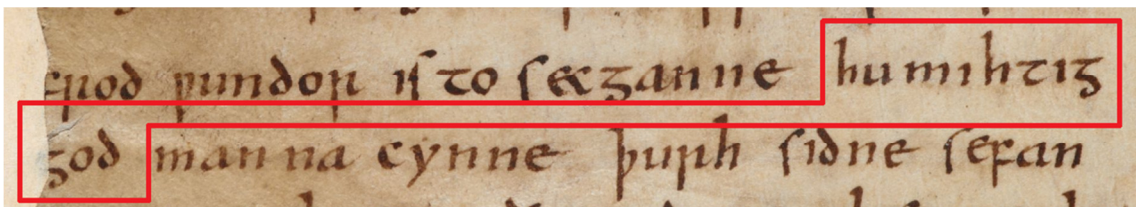 cƿoð ƿundor is to secganne hu mihtig
god manna cynne þurh sidne sefan